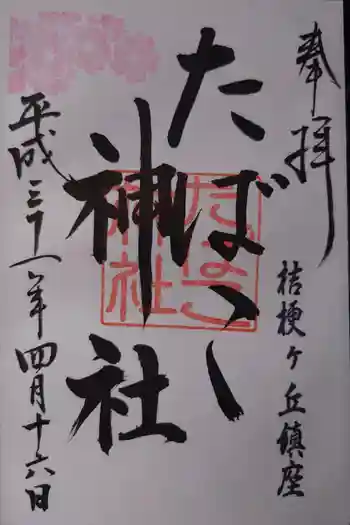 奉拝
桔梗ヶ丘鎮座
たばこ
神社
たばこ
神社
平成三十一年四月十六日